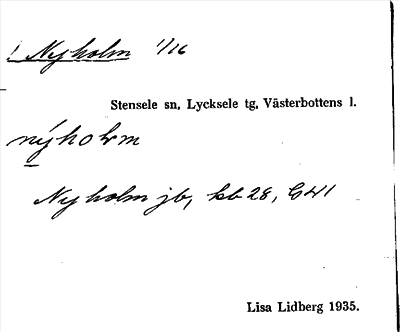 ! Nyholm 1/16
Stensele sn, Lycksele tg, Västerbottens l.
nýholm
Nyholm jb, kb 28, G41
Lisa Lidberg 1935.